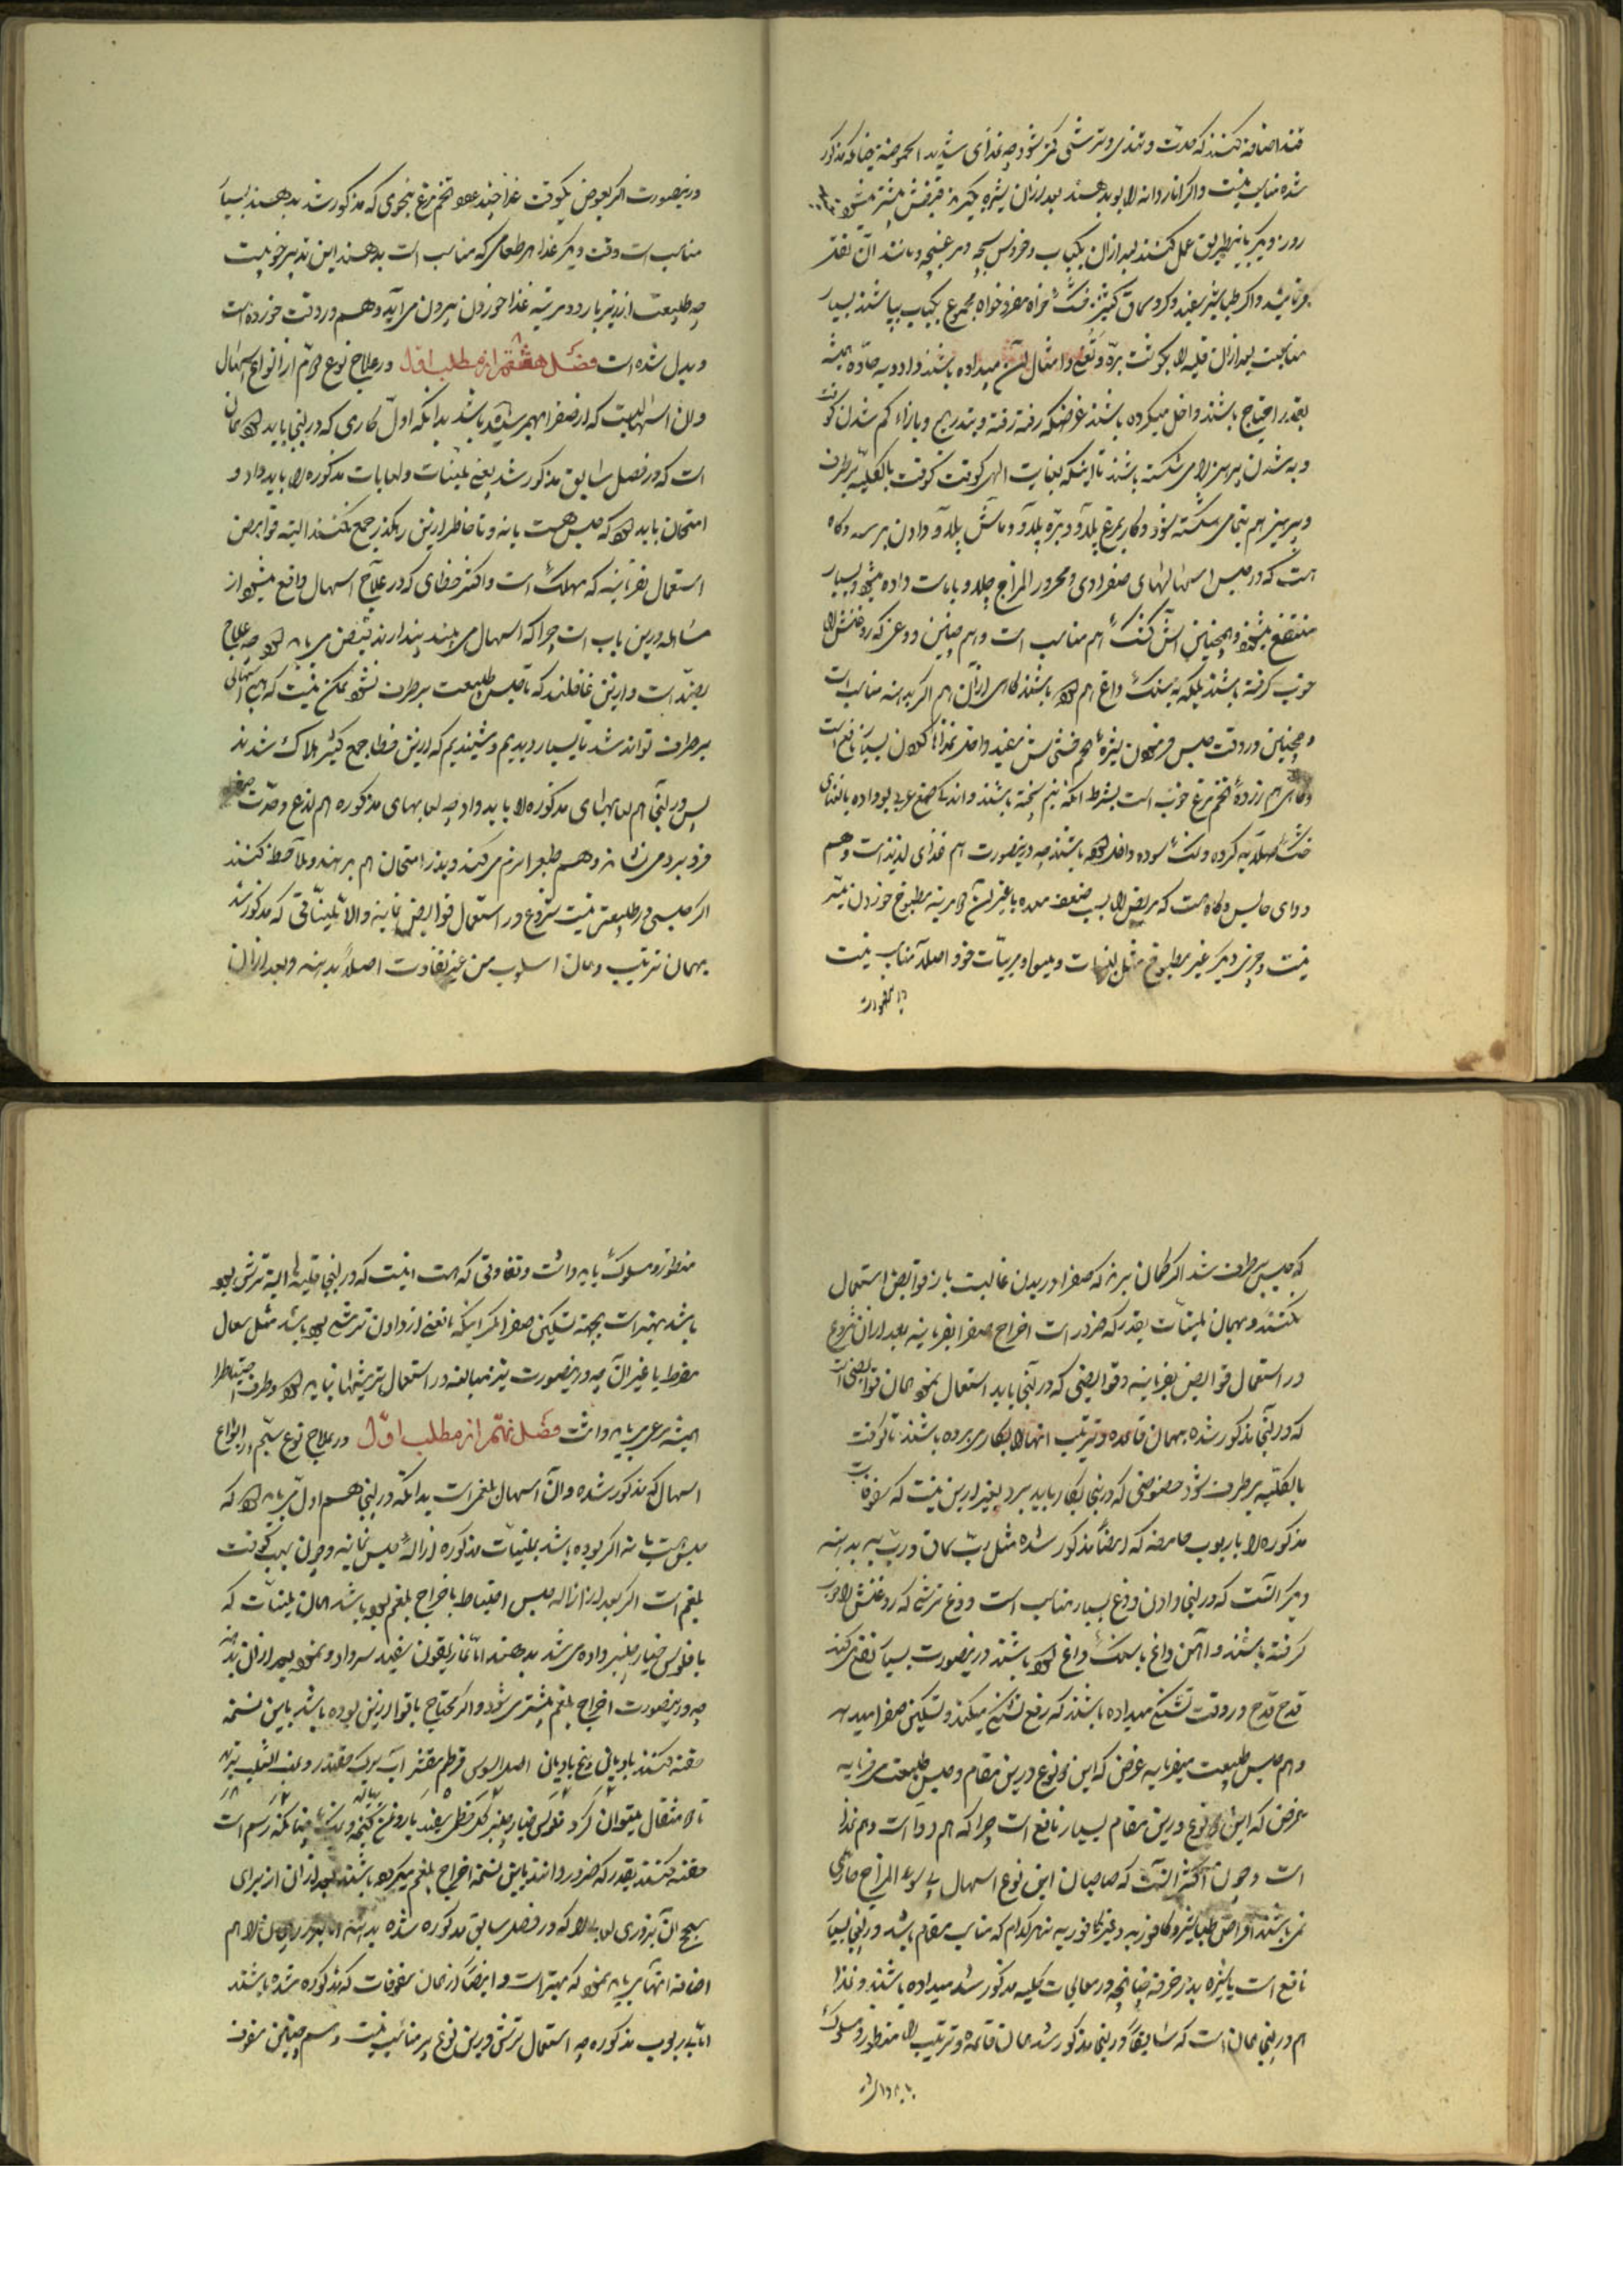 قند اضافه کنند که حدت و تندی و ترشی کمتر شود چه غذای شدید الحموضه چنانکه مذکور
شده مناسب نیست و اگر اناردانه را بو بدهند بعد از آن شیره بگیرند قبضش بیشتر میشود
روز دیگر باین طریق عمل کنند بعد از آن بکباب و خروس بچه و مرغ بچه و مانند آن نقل
فرمایند و اگر طباشیر سفید و گرد سماق کشنیز خشک خواه مفرد خواه مجموع بکباب بپاشند بسیار
مناسبست بعد از آن قلیه را بگوشت بره و نعناع و امثال آن میداده باشند و ادویه حاده همیشه
بقدر احتیاج باشند داخل میکرده باشند غرضکه رفته رفته و بتدریج و بازاء کم شدن کوفت
و به شدن پرهیز را می شکسته باشند تا اینکه بعنایت الهی کوفت کوفت بالکلیه برطرف
و پرهیز هم بتمامی شکسته شود و کار بمرغ پلاو و بره پلاو و ماش پلاو دادن برسد و گاه
هست که در حبس اسهالهای صفراوی و محرور المزاج چلاو و یا ماست داده میشود و بسیار
منتفع میشود و همچنین آش کشک هم مناسب است و هم چنین دوغی که روغنش را
خوب گرفته باشند بلکه به سنگ داغ هم کرده باشند گاهی از آن هم اگر بدهند مناسب است
و همچنین در وقت حبس فرمودن نیزه تخم خشخاش سفید داخل غذاها کردن بسیار نافع است
و گاهی هم زرده تخم مرغ خوب است بشرط آنکه نیم پخته باشند و اندکی صمغ عربی بو داده یا نعنای
خشک صلایه کرده و نمک سوده داخل کرده باشند چه درینصورت هم غذای لذیذ است و هم
دوای حابس و گاه هست که مریض را بسبب ضعف معده یا غیر آن قدرت به مطبوخ خوردن میسر
نیست و چیزی دیگر غیر مطبوخ مثل لبنیات و میوها و مربیات خود اصلا مناسب نیست
درینصورت
درینصورت اگر بعوض یکوقت غذا چند عدد تخم مرغ بنحوی که مذکور شد بدهند بسیار
مناسب است و وقت دیگر غذا هر طعامی که مناسب است بدهند این تدبیر خوبیست
چه طبیعت ازین زیر بار دو مرتبه غذا خوردن بیرون می آید و هم در دو وقت خورده است
و بدل شده است فصل هشتم از مطلب اول در علاج نوع چهارم از انواع اسهال
و آن اسهالیست که از صفرا بهم رسیده باشد بدانکه اول کاری که در اینجا باید کرد همان
است که در فصل سابق مذکور شد یعنی ملینات و لعابات مذکوره را باید داد و
امتحان باید کرد که حبس هست یا نه و تا خاطر ازین رهگذر جمع نکنند البته قوابض
استعمال نفرمایند که مهلک است و اکثر خطای که در علاج اسهال واقع میشود از
مسامحه درین باب است چرا که اسهال می بینند پندارند بقبض می باید کرد چه علاج
بضد است و ازین غافلند که تا حبس طبیعت برطرف نشود ممکن نیست که هیچ اسهالی
برطرف تواند شد تا بسیار دیدیم و شنیدیم که ازین خطا جمع کثیر هلاک شدند
پس در اینجا هم لعابهای مذکوره را باید داد چه لعابهای مذکوره هم لذع و حدت صفرا
فرو برد می نشاند و هم طبع را نرم می کند و بعد از امتحان هم بر مهند و ملاحظه کنند
اگر حبسی در طبیعت نیست شروع در استعمال قوابض نمایند و الا ملیناتی که مذکور شد
بهمان ترتیب و همان اسلوب من غیر تفاوت اصلا بدهند و بعد از آن
که حبس برطرف شد اگر گمان برند که صفرا در بدن غالبست باز قوابض استعمال
نکنند و بهمان ملینات بقدر که ضرور است اخراج صفرا بفرمایند بعد از آن شروع
در استعمال قوابض بفرمایند و قوابضی که در اینجا باید استعمال نمود همان قوابضی است
که در آنجا مذکور شده بهمان قاعده و ترتیب آنها را بکار می برده باشند تا کوفت
بالکلیه برطرف شود خصوصی که درینجا بکار باید برد بغیر ازین نیست که سفوفات
مذکوره را با ربوب حامضه که ایضا مذکور شده مثل رب سماق و رب به بدهند
و دیگر آنست که در اینجا دادن دوغ بسیار مناسب است دوغ ترشی که روغنش را خوب
گرفته باشند و آهن داغ یا سنگ داغ کرده باشند درینصورت بسیار نفع می کند
قدح قدح در وقت تشنگی میداده باشند که رفع تشنگی میکند و تسکین صفرا میدهد
و هم حبس طبیعت میفرماید غرض که این دوغ درین مقام و حبس طبیعت می فرماید
غرض که این دوغ درین مقام بسیار نافع است چرا که هم دوا است و هم غذا
است و چون اکثر آنست که صاحبان این نوع اسهال بی سوء المزاج حاری
نمی باشند اقراص طباشیر و کافوریه و غیر کافوریه هر کدام که مناسب مقام باشد در اینجا بسیار
نافع است با شیره بذر خرفه چنانچه در معالجات کلیه مذکور شد میداده باشند و غذا
هم در اینجا همان است که سابقا در اینجا مذکور شد همان قاعده و ترتیب را منظور و مسلوک
باید داشت
منظور و مسلوک باید داشت و تفاوتی که هست اینست که در اینجا قلیه ها البته ترش بوده
باشد بهتر است بجهة تسکین صفرا مگر اینکه مانعی از دادن ترشی بوده باشد مثل سعال
مفرط یا غیر آن چه درینصورت نیز مبالغه در استعمال ترشیها نباید کرد و طرف احتیاط را
البته مرعی باید داشت فصل نهم از مطلب اول در علاج نوع پنجم از انواع
اسهال که مذکور شده و آن اسهال بلغمی است بدانکه در اینجا هم اول می باید دید که
حبس هست یا نه اگر بوده باشد بملینات مذکوره ازاله حبس نمایند و چون سبب کوفت
بلغم است اگر بعد از ازاله حبس احتیاط باخراج بلغم بوده باشد همان ملینات که
با فلوس خیار چنبر داده می شد بدهند اما غاریقون سفید سر داد و نمود بعد از آن بدهند
چه درینصورت اخراج بلغم بیشتر می شود و اگر محتاج باقوا ازین بوده باشد باین نسخه
حقنه کنند بادیان بیخ بادیان اصل السوس قرطم مقشر آب برگ چقندر و عنب الثعلب تازه
تا مثقال میتوان کرد فلوس خیار چنبر گل خطمی سفید با روغن کنجد و نمک چنانکه رسم است
حقنه کنند بقدر که ضرور دانند باین نسخه اخراج بلغم میکرده باشند بعد از آن از برای
سحج آن بزوری لعابی را که در فصل سابق مذکوره شده بدهند اما بزر ریحان را هم
اضافه آنها می باید نمود که بهتر است و ایضا از همان سفوفات که مذکوره شده باشند
اما نه بربوب مذکوره چه استعمال ترشی درین نوع پر مناسب نیست و هم چنین سفوف